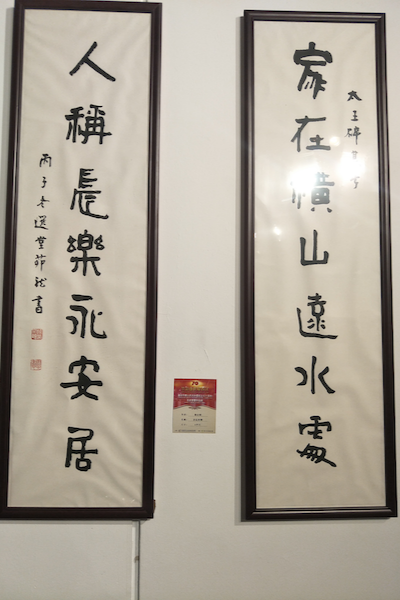 太王碑
家在橫山遠水處
人稱長樂永安居
丙子冬選堂茆龍書
70